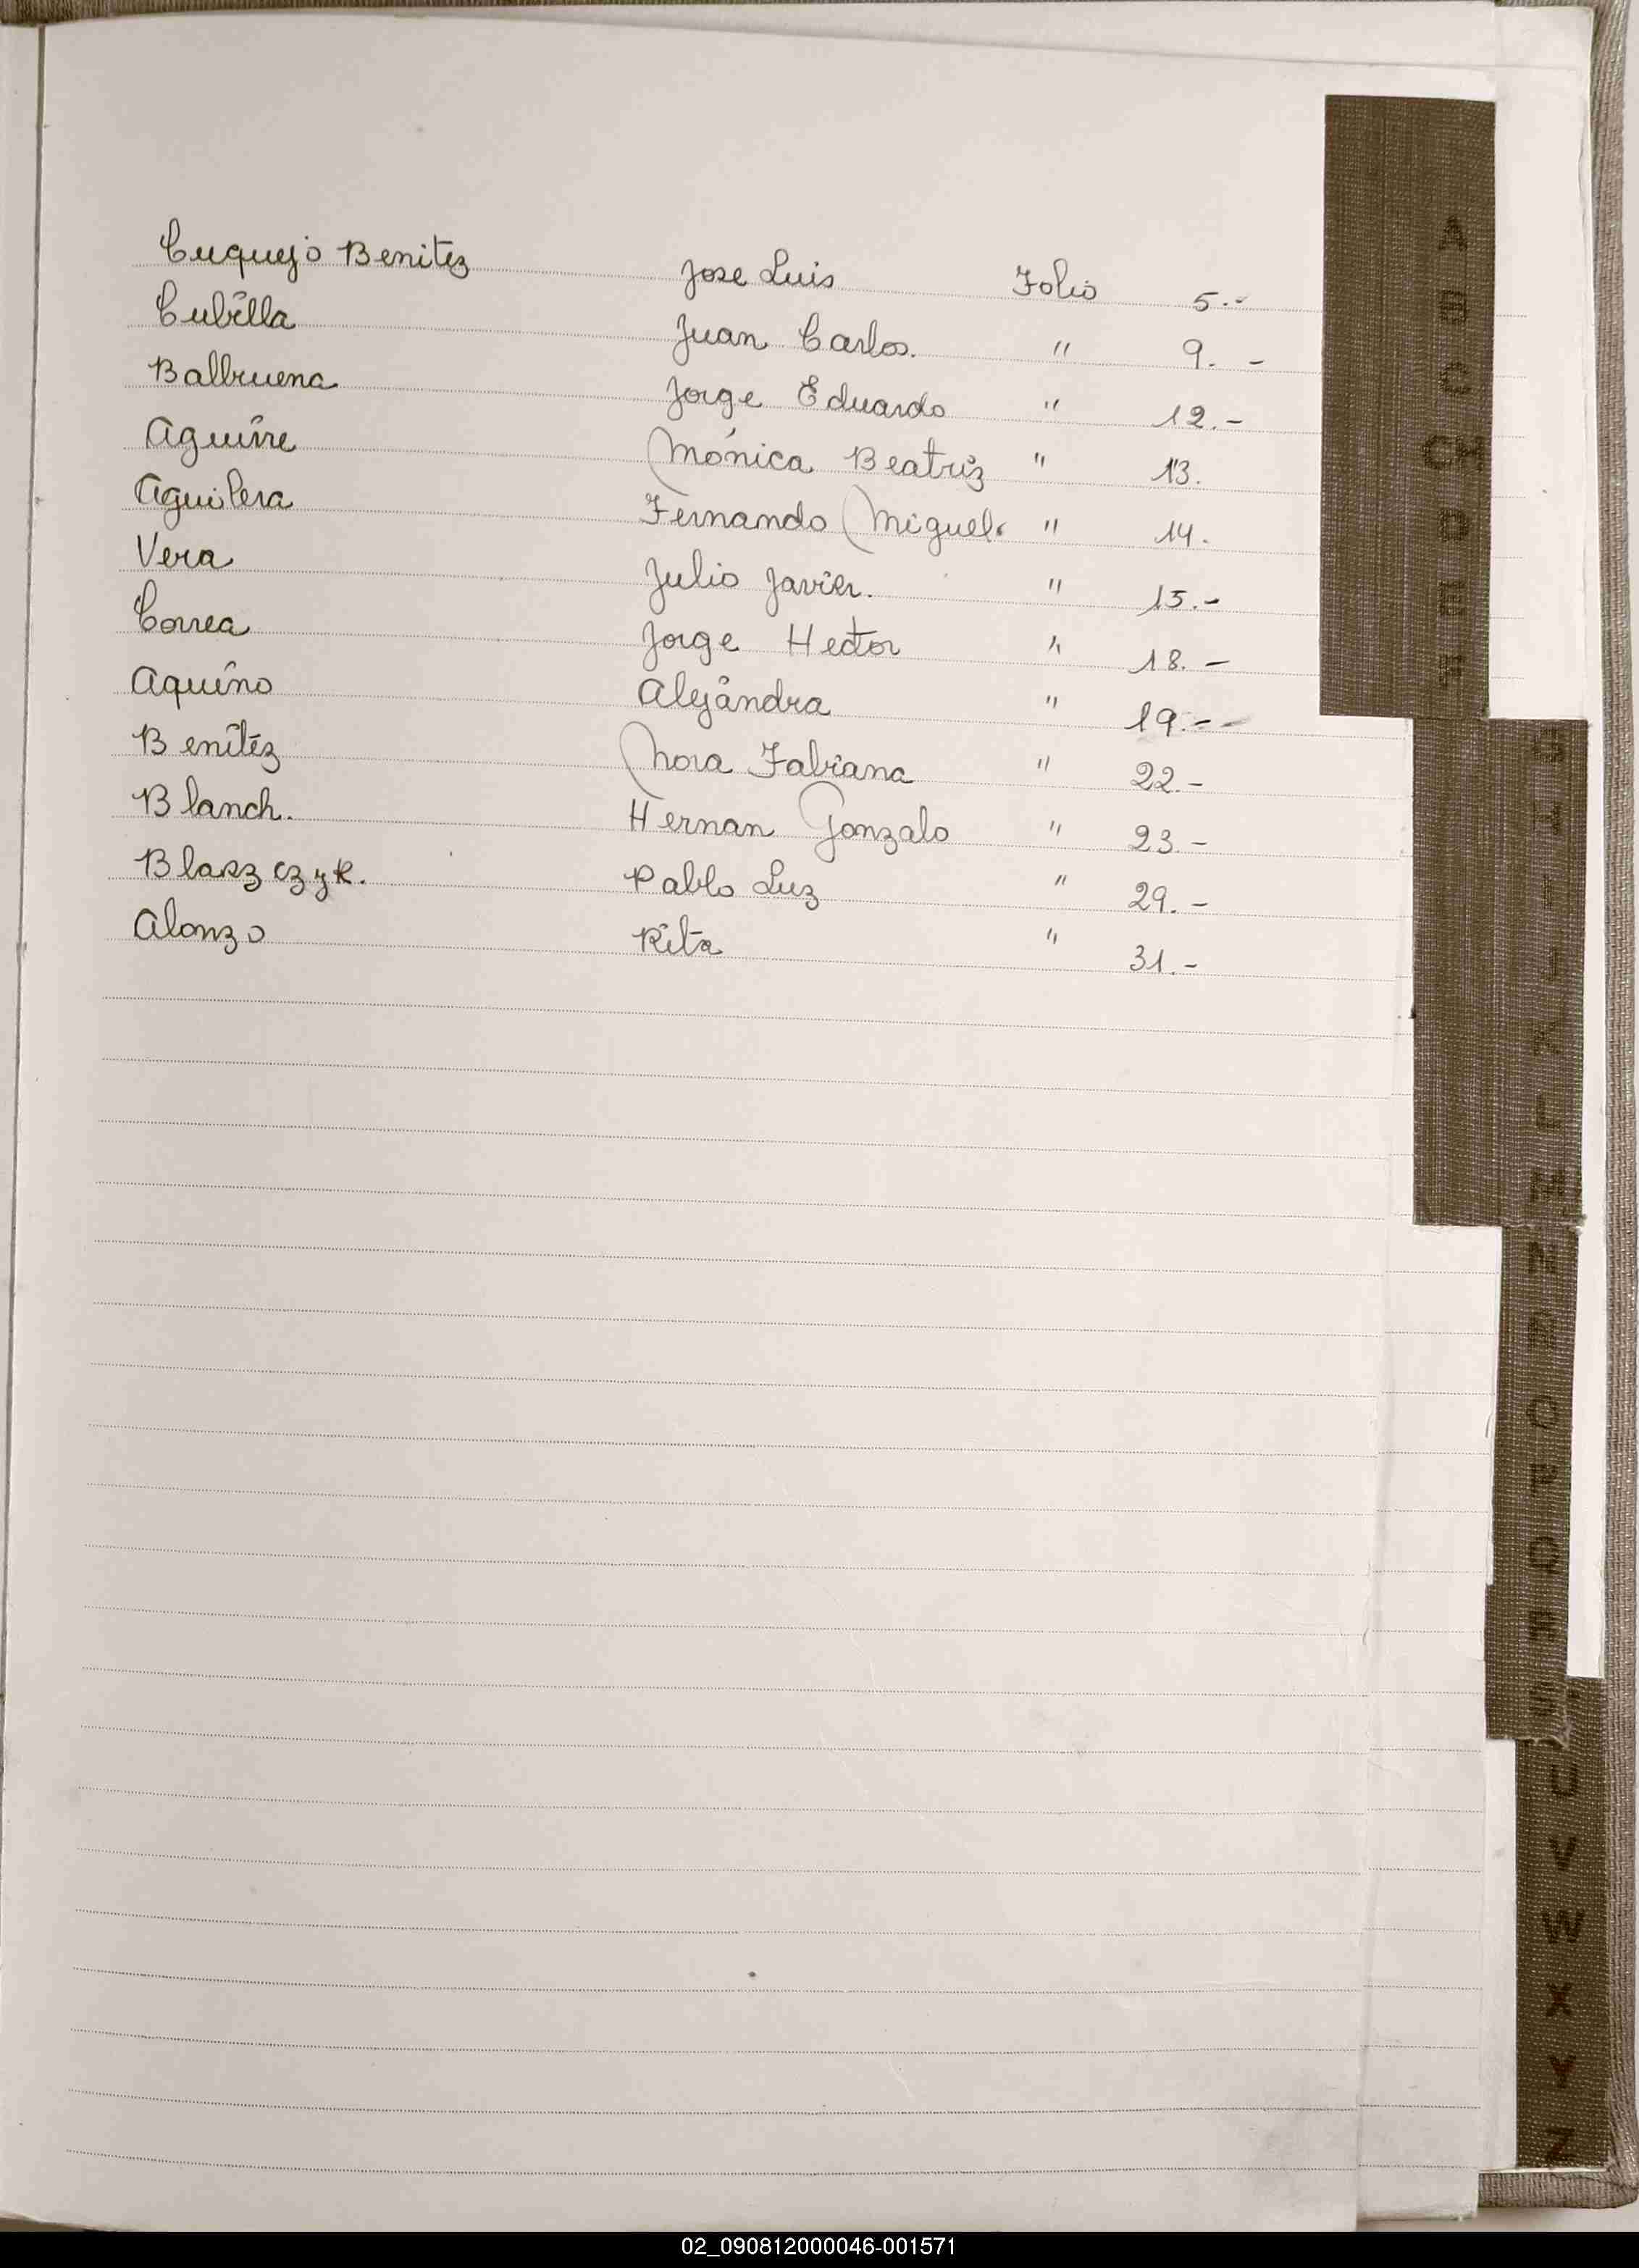 Cuquejo Benitez Jose Luis Folio 5.--
Cubilla Juan Carlos. " 9. -
Balbuena Jorge Eduardo " 12.-
Aguirre Mónica Beatriz " 13.
Aguilera Fernando Miguel. " 14.
Vera Julio Javier. " 15.-
Correa Jorge Hector " 18. -
Aquino Alejandra " 19.--
Benitéz Nora Fabiana " 22.-
Blanch. Hernan Gonzalo " 23.-
Blaszczyk. Pablo Luz " 29.-
Alonzo Rita " 31.-
A
B
C
CH
D
E
F
G
H
I
J
K
L
M
N
Ñ
O
P
Q
R
S
U
V
W
X
Y
Z
02_090812000046-001571